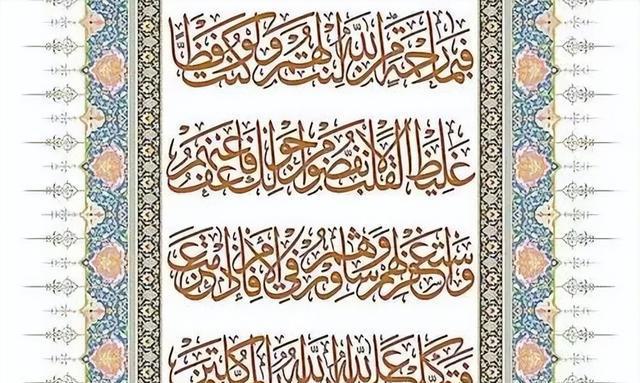 فَبِمَا رَحْمَةٍ مِّنَ اللَّهِ لِنتَ لَهُمْ وَلَوْ كُنتَ فَظًّا
غَلِيظَ الْقَلْبِ لَانفَضُّوا مِنْ حَوْلِكَ فَاعْفُ عَنْهُمْ
وَاسْتَغْفِرْ لَهُمْ وَشَاوِرْهُمْ فِي الْأَمْرِ فَإِذَا عَزَمْتَ
فَتَوَكَّلْ عَلَى اللَّهِ إِنَّ اللَّهَ الْمُتَوَكِّلِينَ